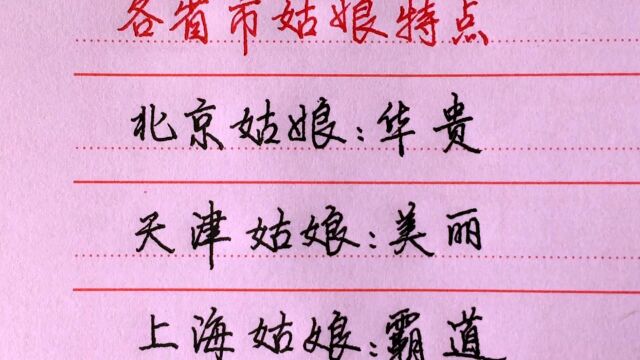 各省市姑娘特点
北京姑娘：华贵
天津姑娘：美丽
上海姑娘：霸道